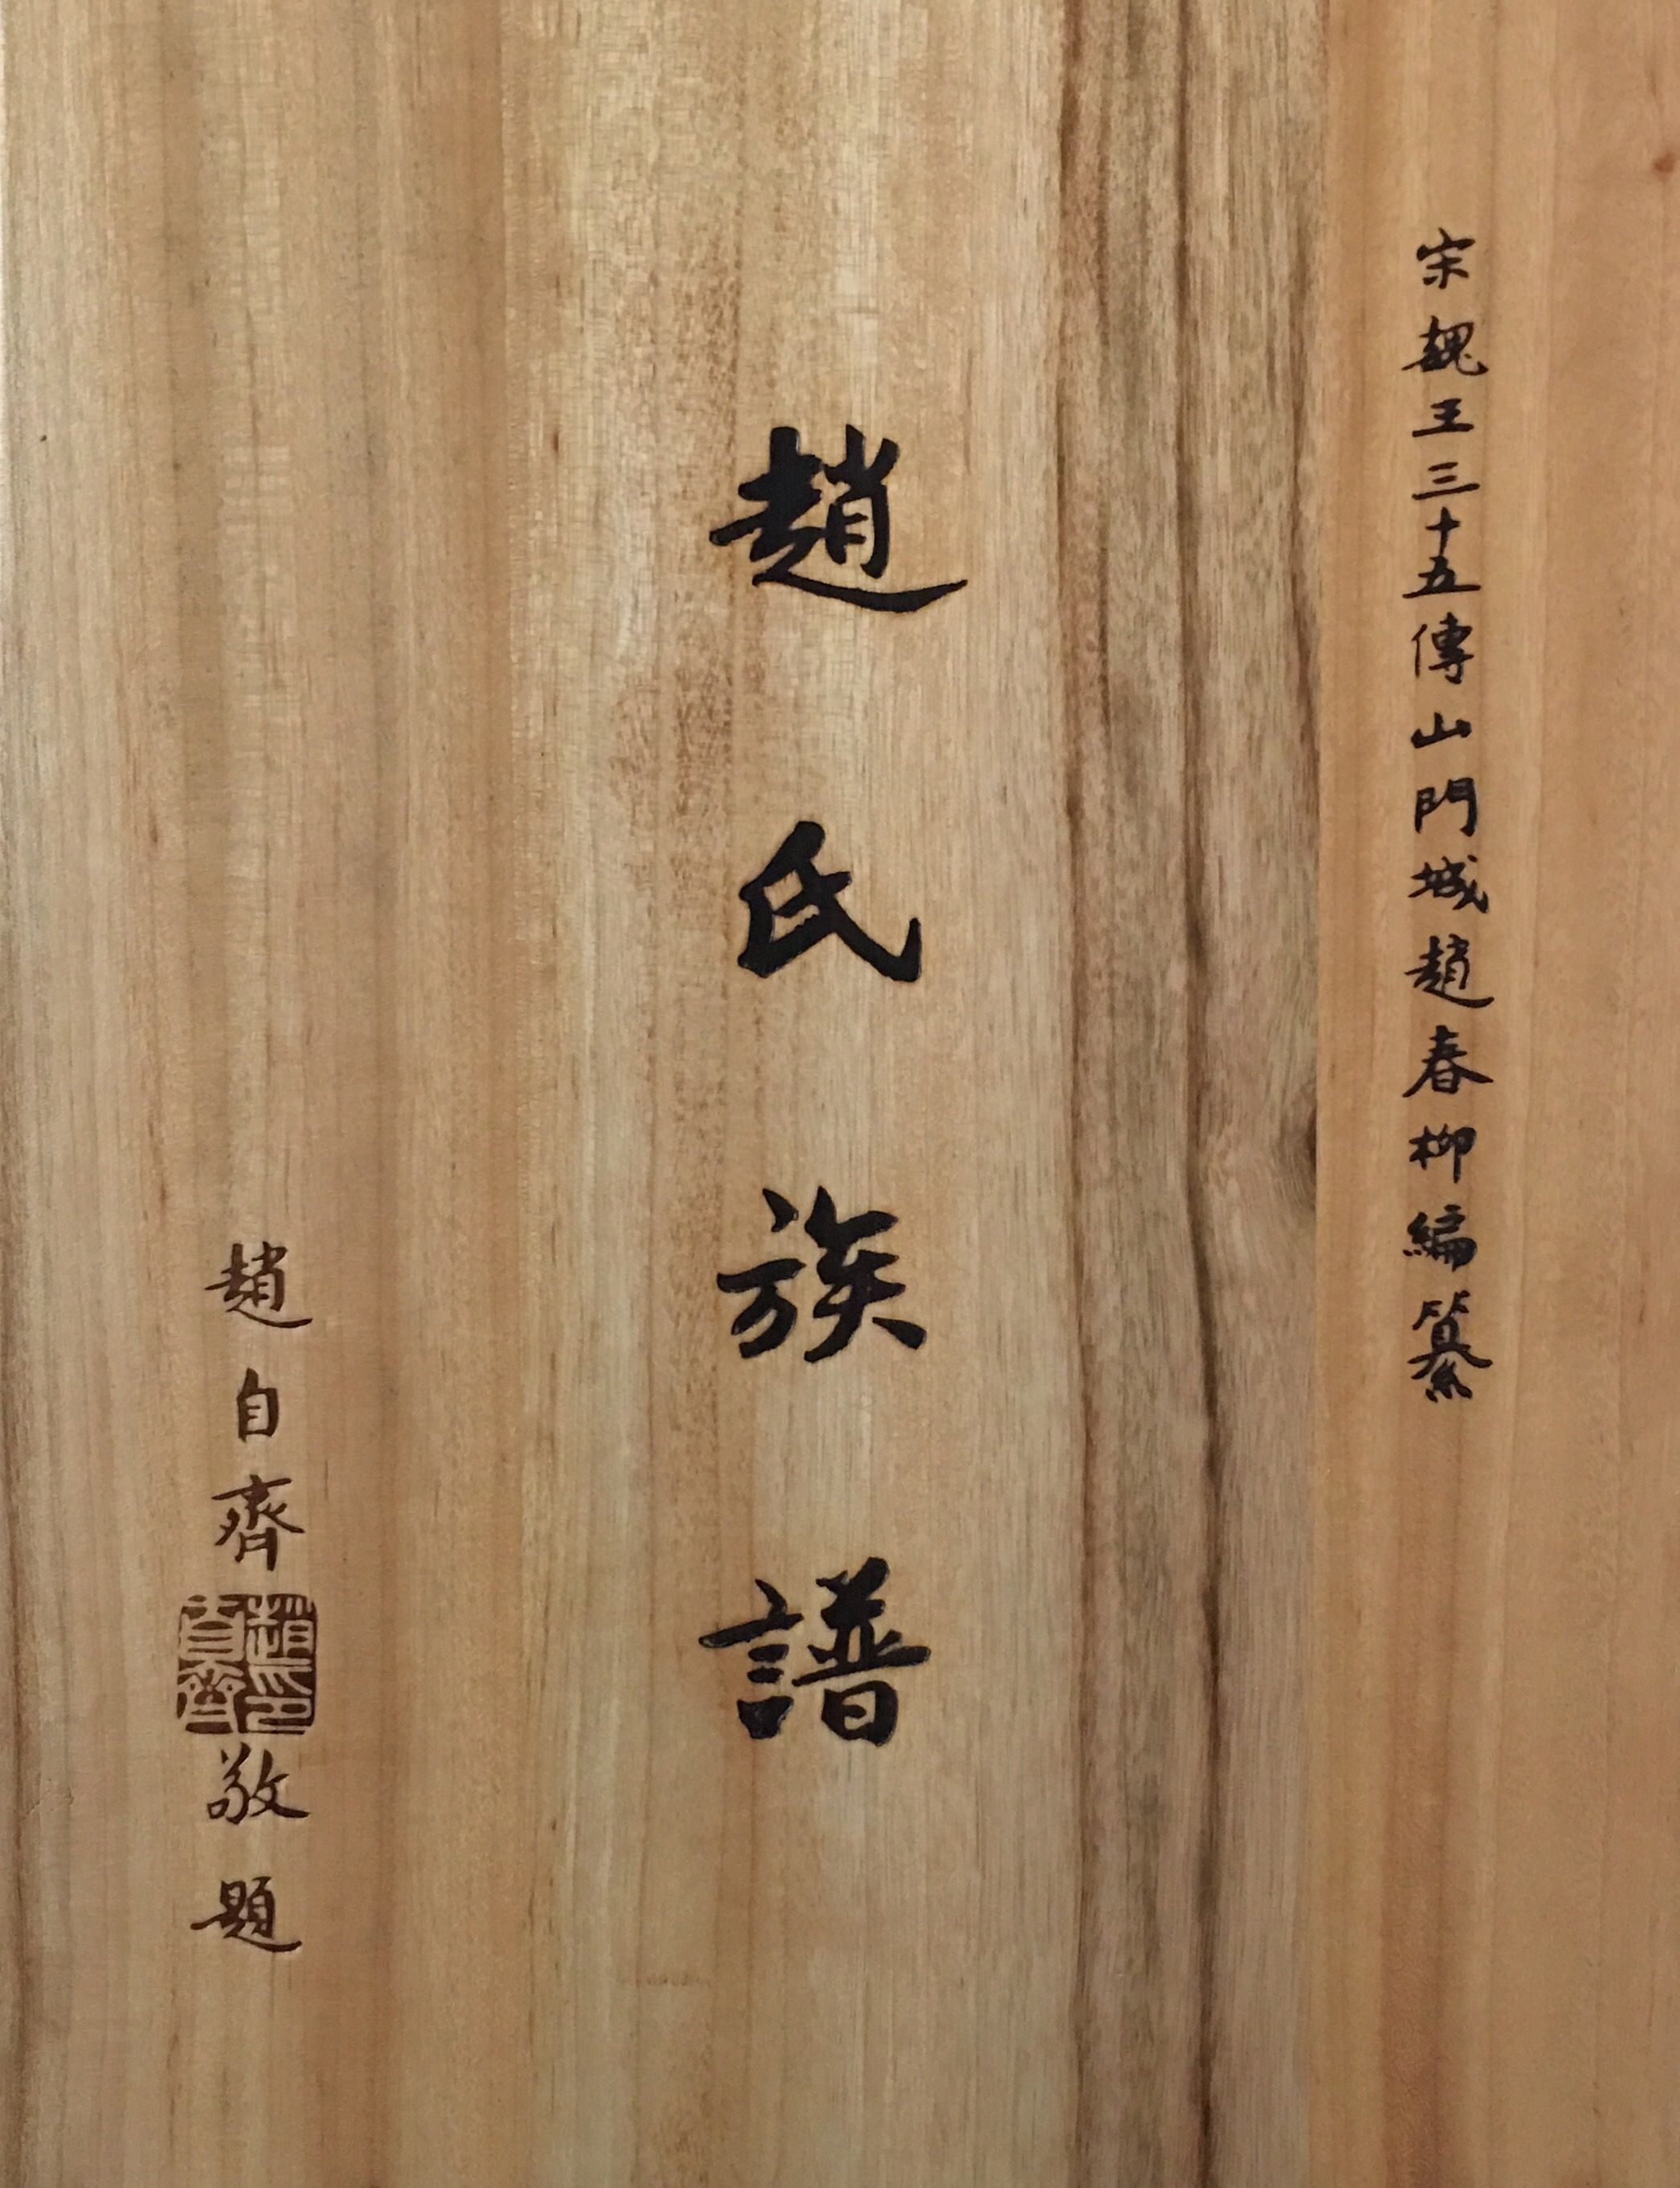 宋魏王三十五傳山門城趙春柳編纂
趙氏族譜
趙自齊
趙印自齊
敬題